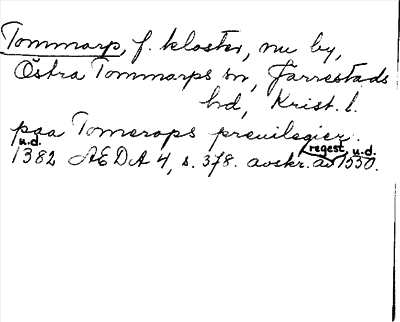 Tommarp, f. kloster, nu by,
Östra Tommarps sn, Järrestads
hd, Krist. l.
paa Tomerops preuilegier.
u.d. regest, u.d.
1382 AEDA 4, s. 378. avskr. av 1550.